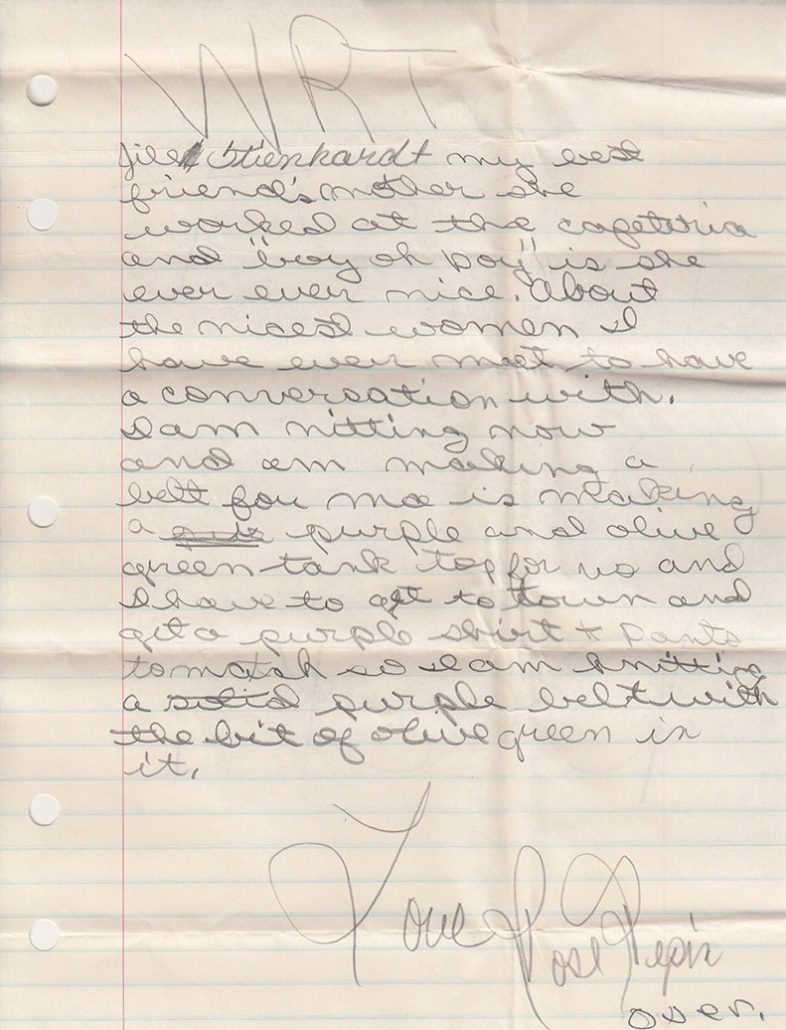 WRT
Jill Stienhardt my best
friend's mother she
worked at the cafeteria
and "boy oh boy" is she
ever ever nice. About
the nicest women I
have ever meet to have
a conversation with.
I am nitting now
and am making a
belt for ma is making
a purple and olive
green tank top for us and
I have to get to town and
get a purple shirt + pants
to match so I am knitting
a solid purple belt with
the bit of olive green in
it.
Love Rose Pepin
over.